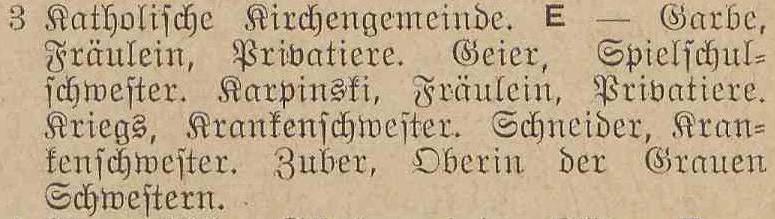 3 Katholische Kirchengemeinde. E — Garbe,
Fräulein, Privatiere. Geier, Spielschul-
schwester. Karpinski, Fräulein, Privatiere.
Kriegs, Krankenschwester. Schneider, Kran-
kenschwester. Zuber, Oberin der Grauen
Schwestern.